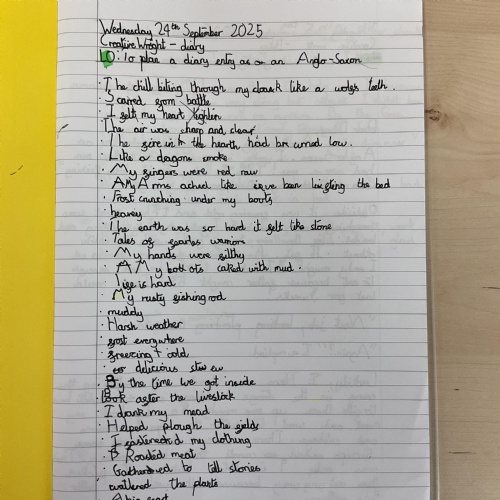 Wednesday 24th September 2025
Creative Wright - diary
LO: To plan a diary entry as an Anglo-Saxon
· The chill biting through my cloak like a wolfs teeth.
· Scarred from battle
· I felt my heart tighten
The air was sharp and clear
· The fire in the hearth had burned low.
· Like a dragons smoke
· My fingers were red raw
· My Arms ached like I've been lifting the bed
· Frost crunching under my boots
· heavey
· The earth was so hard it felt like stone
· Tales of fearles warriors
· My hands were filthy
· My boots caked with mud.
· Life is hard
· My rusty fishing rod
· muddy
· Harsh weather
· frost everywhere
· freezing + cold
· delicious stew
· By the time we got inside
· Look after the livestock
· I drank my mead
· Helped plough the fields
· I fastened my clothing
· Roasted meat
· Gathered to tell stories
watered the plants
A big